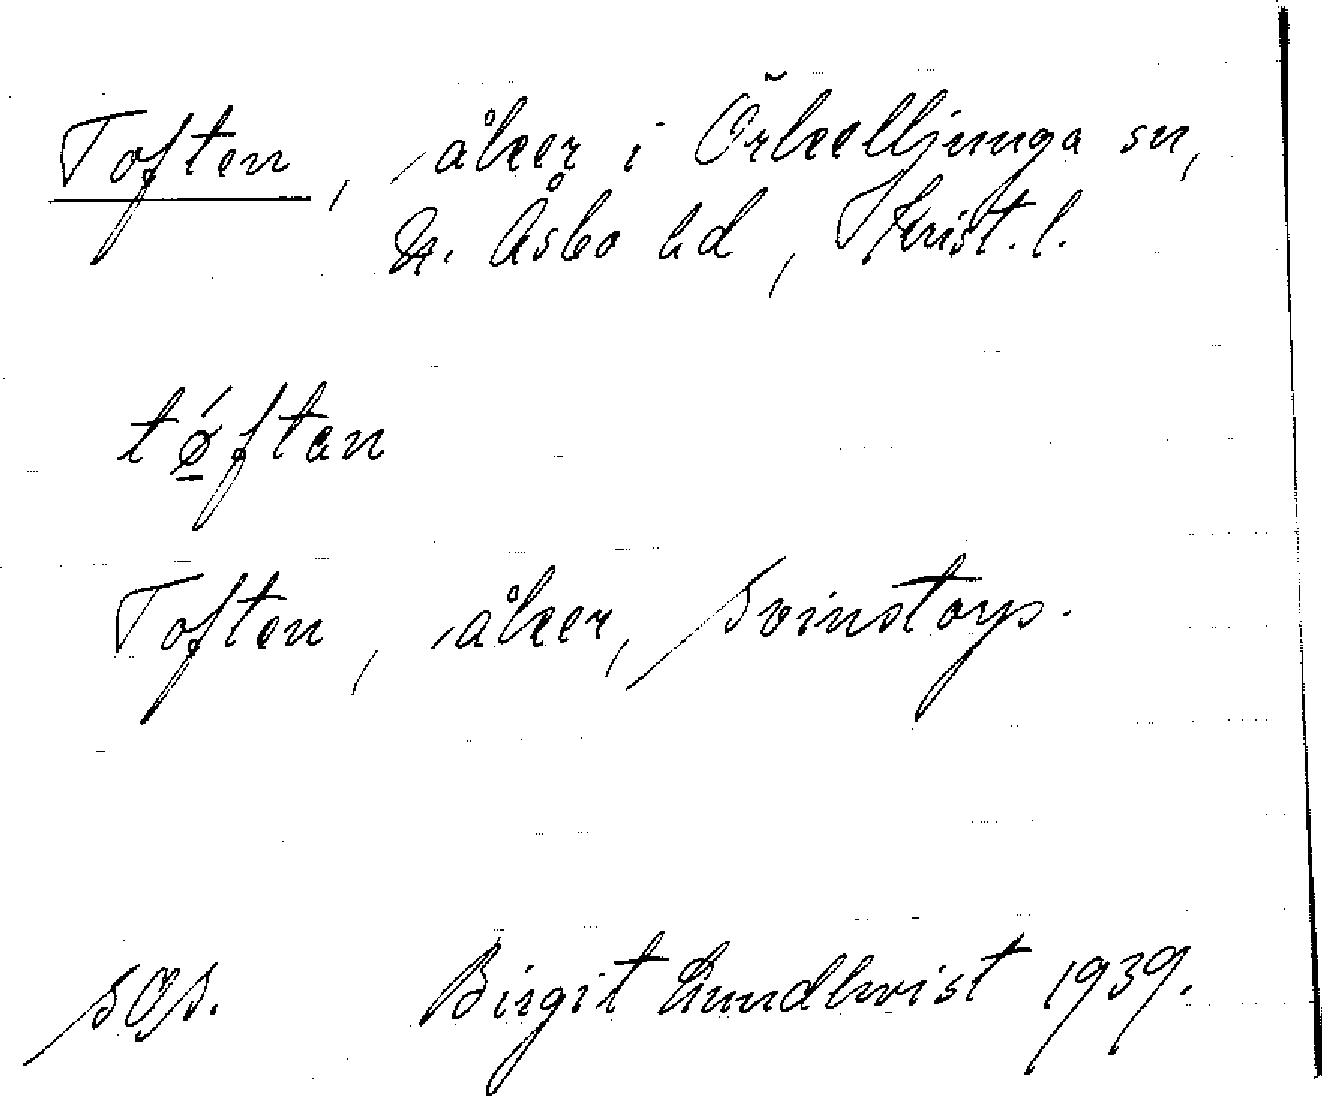 Toften, åker i Örkelljunga sn,
N. Åsbo hd, Krist. l.
tǿftan
Toften, åker, Svinstorp.
sOs. Birgit Lundkvist 1939.